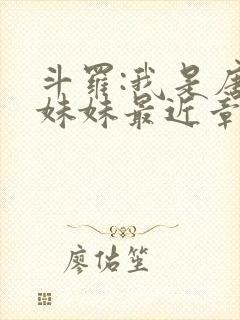 斗罗:我是唐
妹妹最近章
廖估笙